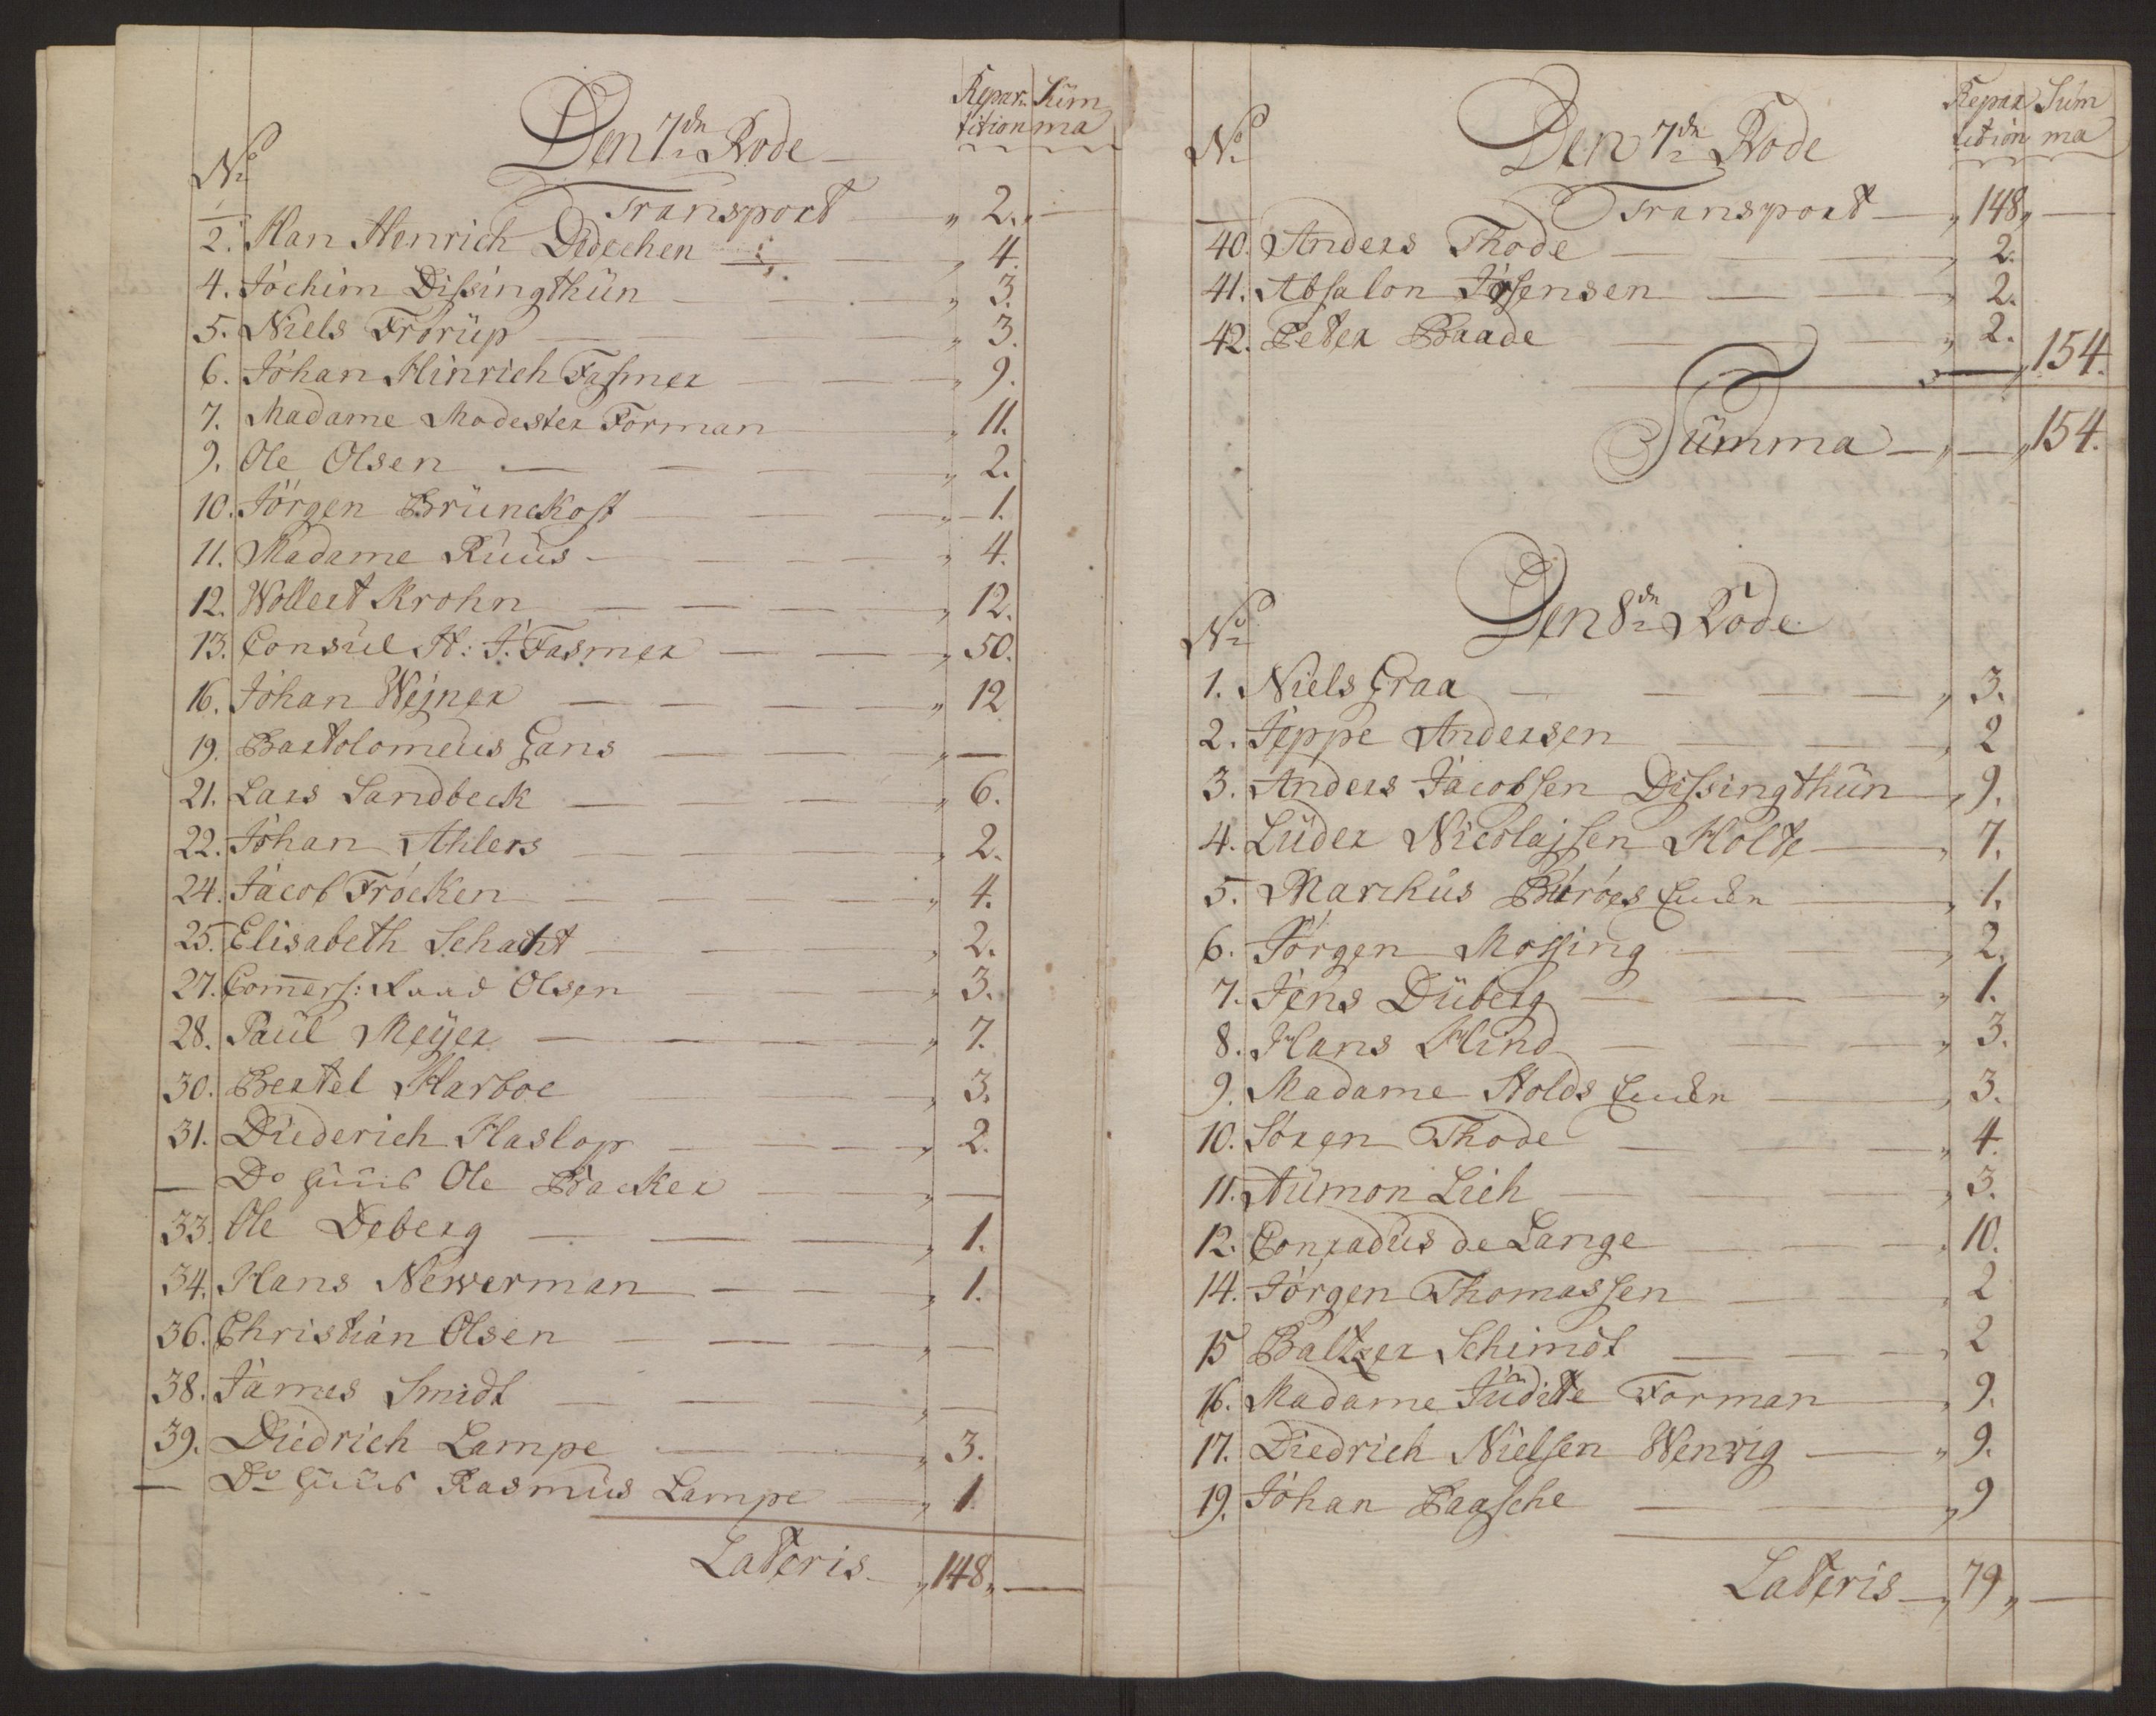 No
Den 7de Rode
Repar: Sum
tition ma
Transport — 2. —
2. Han Henrich Dedechen — 4.
4. Jochim Dissingthün — 3.
5. Niels Frörüp — 3.
6. Johan Hinrich Fasmer — 9.
7. Madame Modester Forman — 11.
9. Ole Olsen — 2.
10. Jörgen Brünckost — 1.
11. Madame Ruus — 4.
12. Wollert Krohn — 12.
13. Consul H: J: Fasmer — 50.
16. Johan Wejner — 12
19. Bartolomeus Gans — —
21. Lars Sandbeck — 6.
22. Johan Ahlers — 2.
24. Jacob Fröcken — 4.
25. Elisabeth Schacht — 2.
27. Commers: Raad Olsen — 3.
28. Paul Meyer — 7.
30. Bertel Harboe — 3.
31. Diederich Haslop — 2.
— Do Huus Ole Backer — —
33. Ole Deberg — 1.
34. Hans Newerman — 1.
36. Christian Olsen — —
38. James Smidt — —
39. Diedrich Lampe — 3.
— Do Huus Rasmus Lampe — 1
Lateris — 148 —
No
Den 7de Rode
Repar Sum
tition ma
Transport — 148 —
40. Anders Thode — 2.
41. Absalon Jörsensen — 2.
42. Peter Baade — 2.
— 154.
Summa — — 154.
No
Den 8de Rode
1. Niels Graa — 3.
2. Jeppe Andersen — 2
3. Anders Jacobsen Dissingthün — 9.
4. Lüder Nicolajsen Holte — 7.
5. Marchus Büröes Enken — 1.
6. Jörgen Mossing — 2.
7. Jens Düberg — 1.
8. Hans Hind — 3.
9. Madame Holds Enken — 3.
10. Sören Thode — 4.
11. Aümon Lich — 3.
12. Conradus de Lange — 10.
14. Jörgen Thomassen — 2
15 Baltzer Schimdt — 2
16. Madame Juditte Forman — 9.
17. Diedrich Nielsen Wenwig — 9.
19. Johan Baasche — 9
Lateris — 79 —